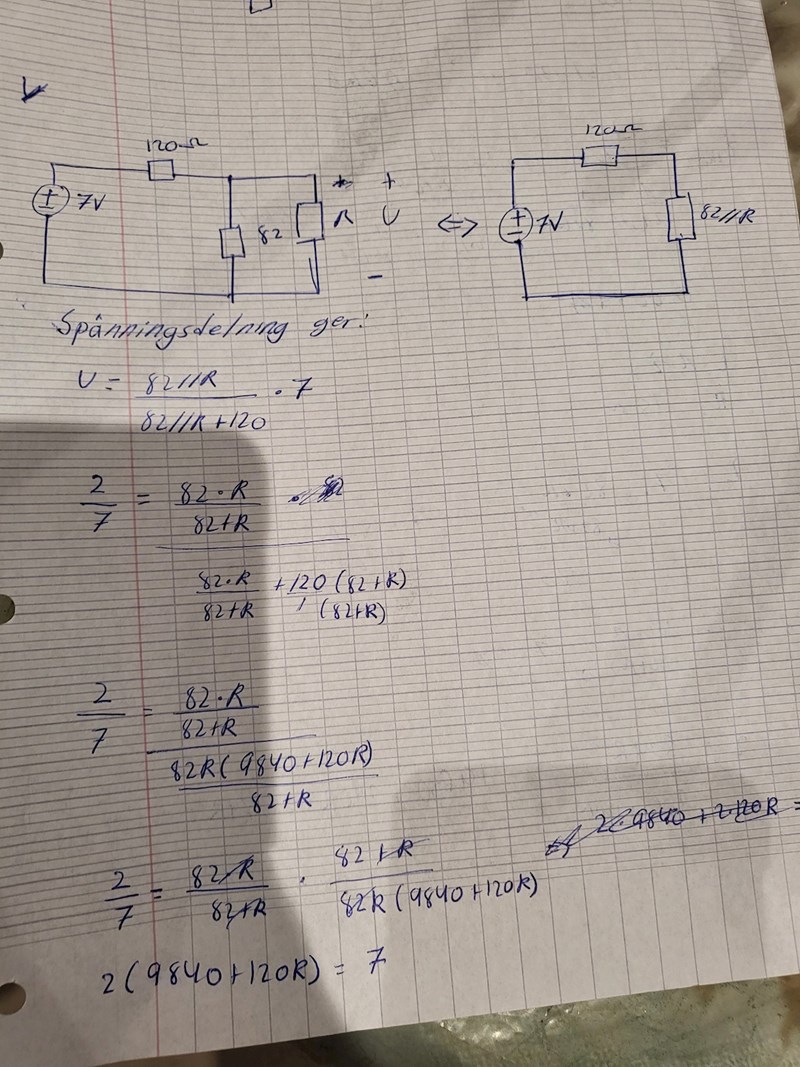 120Ω 120Ω
+ 7V 82 R + U - ⇔ + 7V 82//R
Spänningsdelning ger:
U = 82//R / 82//R+120 · 7
2/7 = 82·R / 82+R
82·R / 82+R + 120 (82+R) / 1 (82+R)
2/7 = 82·R / 82+R
82R(9840+120R) / 82+R
2·9840+2·120R =
2/7 = 82R / 82+R · 82+R / 82R(9840+120R)
2(9840+120R) = 7